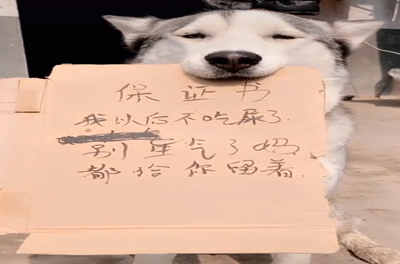 保证书
我以后不吃屎了
别生气了妈
都给你留着.